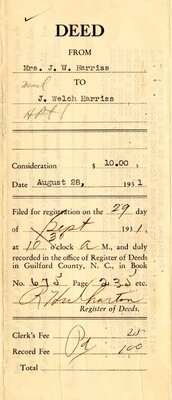 DEED
FROM
Mrs. J. W. Harriss
TO
J. Welch Harriss
Consideration $ 10.00
Date August 28, 1931
Filed for registration on the 29 day
of Sept 1931
at 10 o'clock A M., and duly
recorded in the office of Register of Deeds
in Guilford County, N. C., in Book
No. 673 Page 233 etc.
Register of Deeds.
Clerk's Fee 25
Record Fee Pd 100
Total